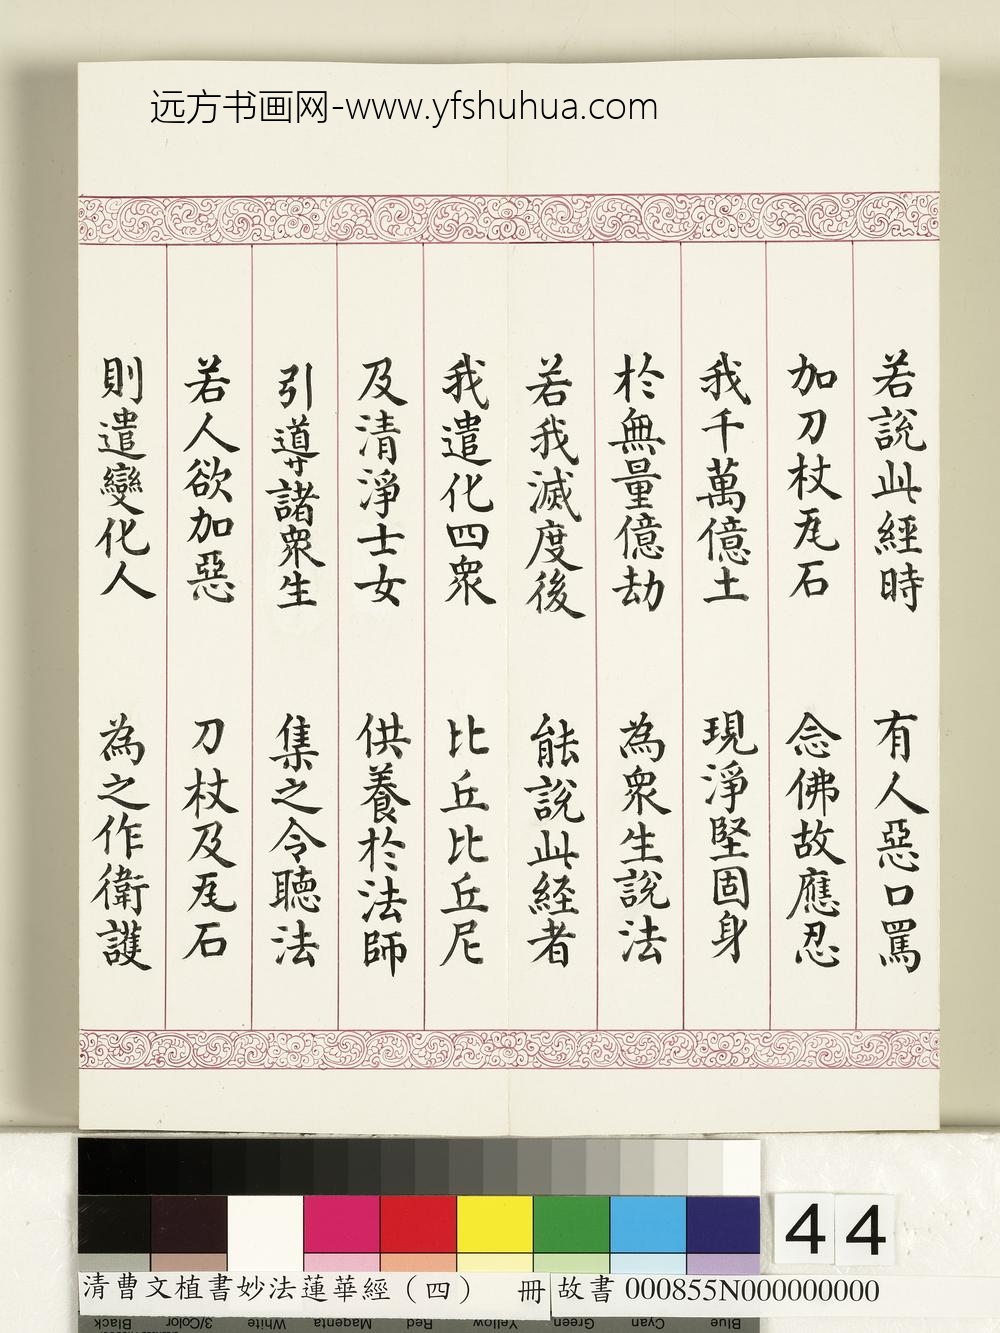 远方书画网-www.yfshuhua.com
若說此經時 有人惡口罵
加刀杖瓦石 念佛故應忍
我千萬億土 現淨堅固身
於無量億劫 為衆生說法
若我滅度後 能說此経者
我遣化四衆 比丘比丘尼
及清淨士女 供養於法師
引導諸衆生 集之令聽法
若人欲加惡 刀杖及瓦石
則遣變化人 為之作衛護
44
清曹文植書妙法蓮華經（四） 冊 故書 000855N000000000
Black 3/Color White Magenta Red Yellow Green Cyan Blue